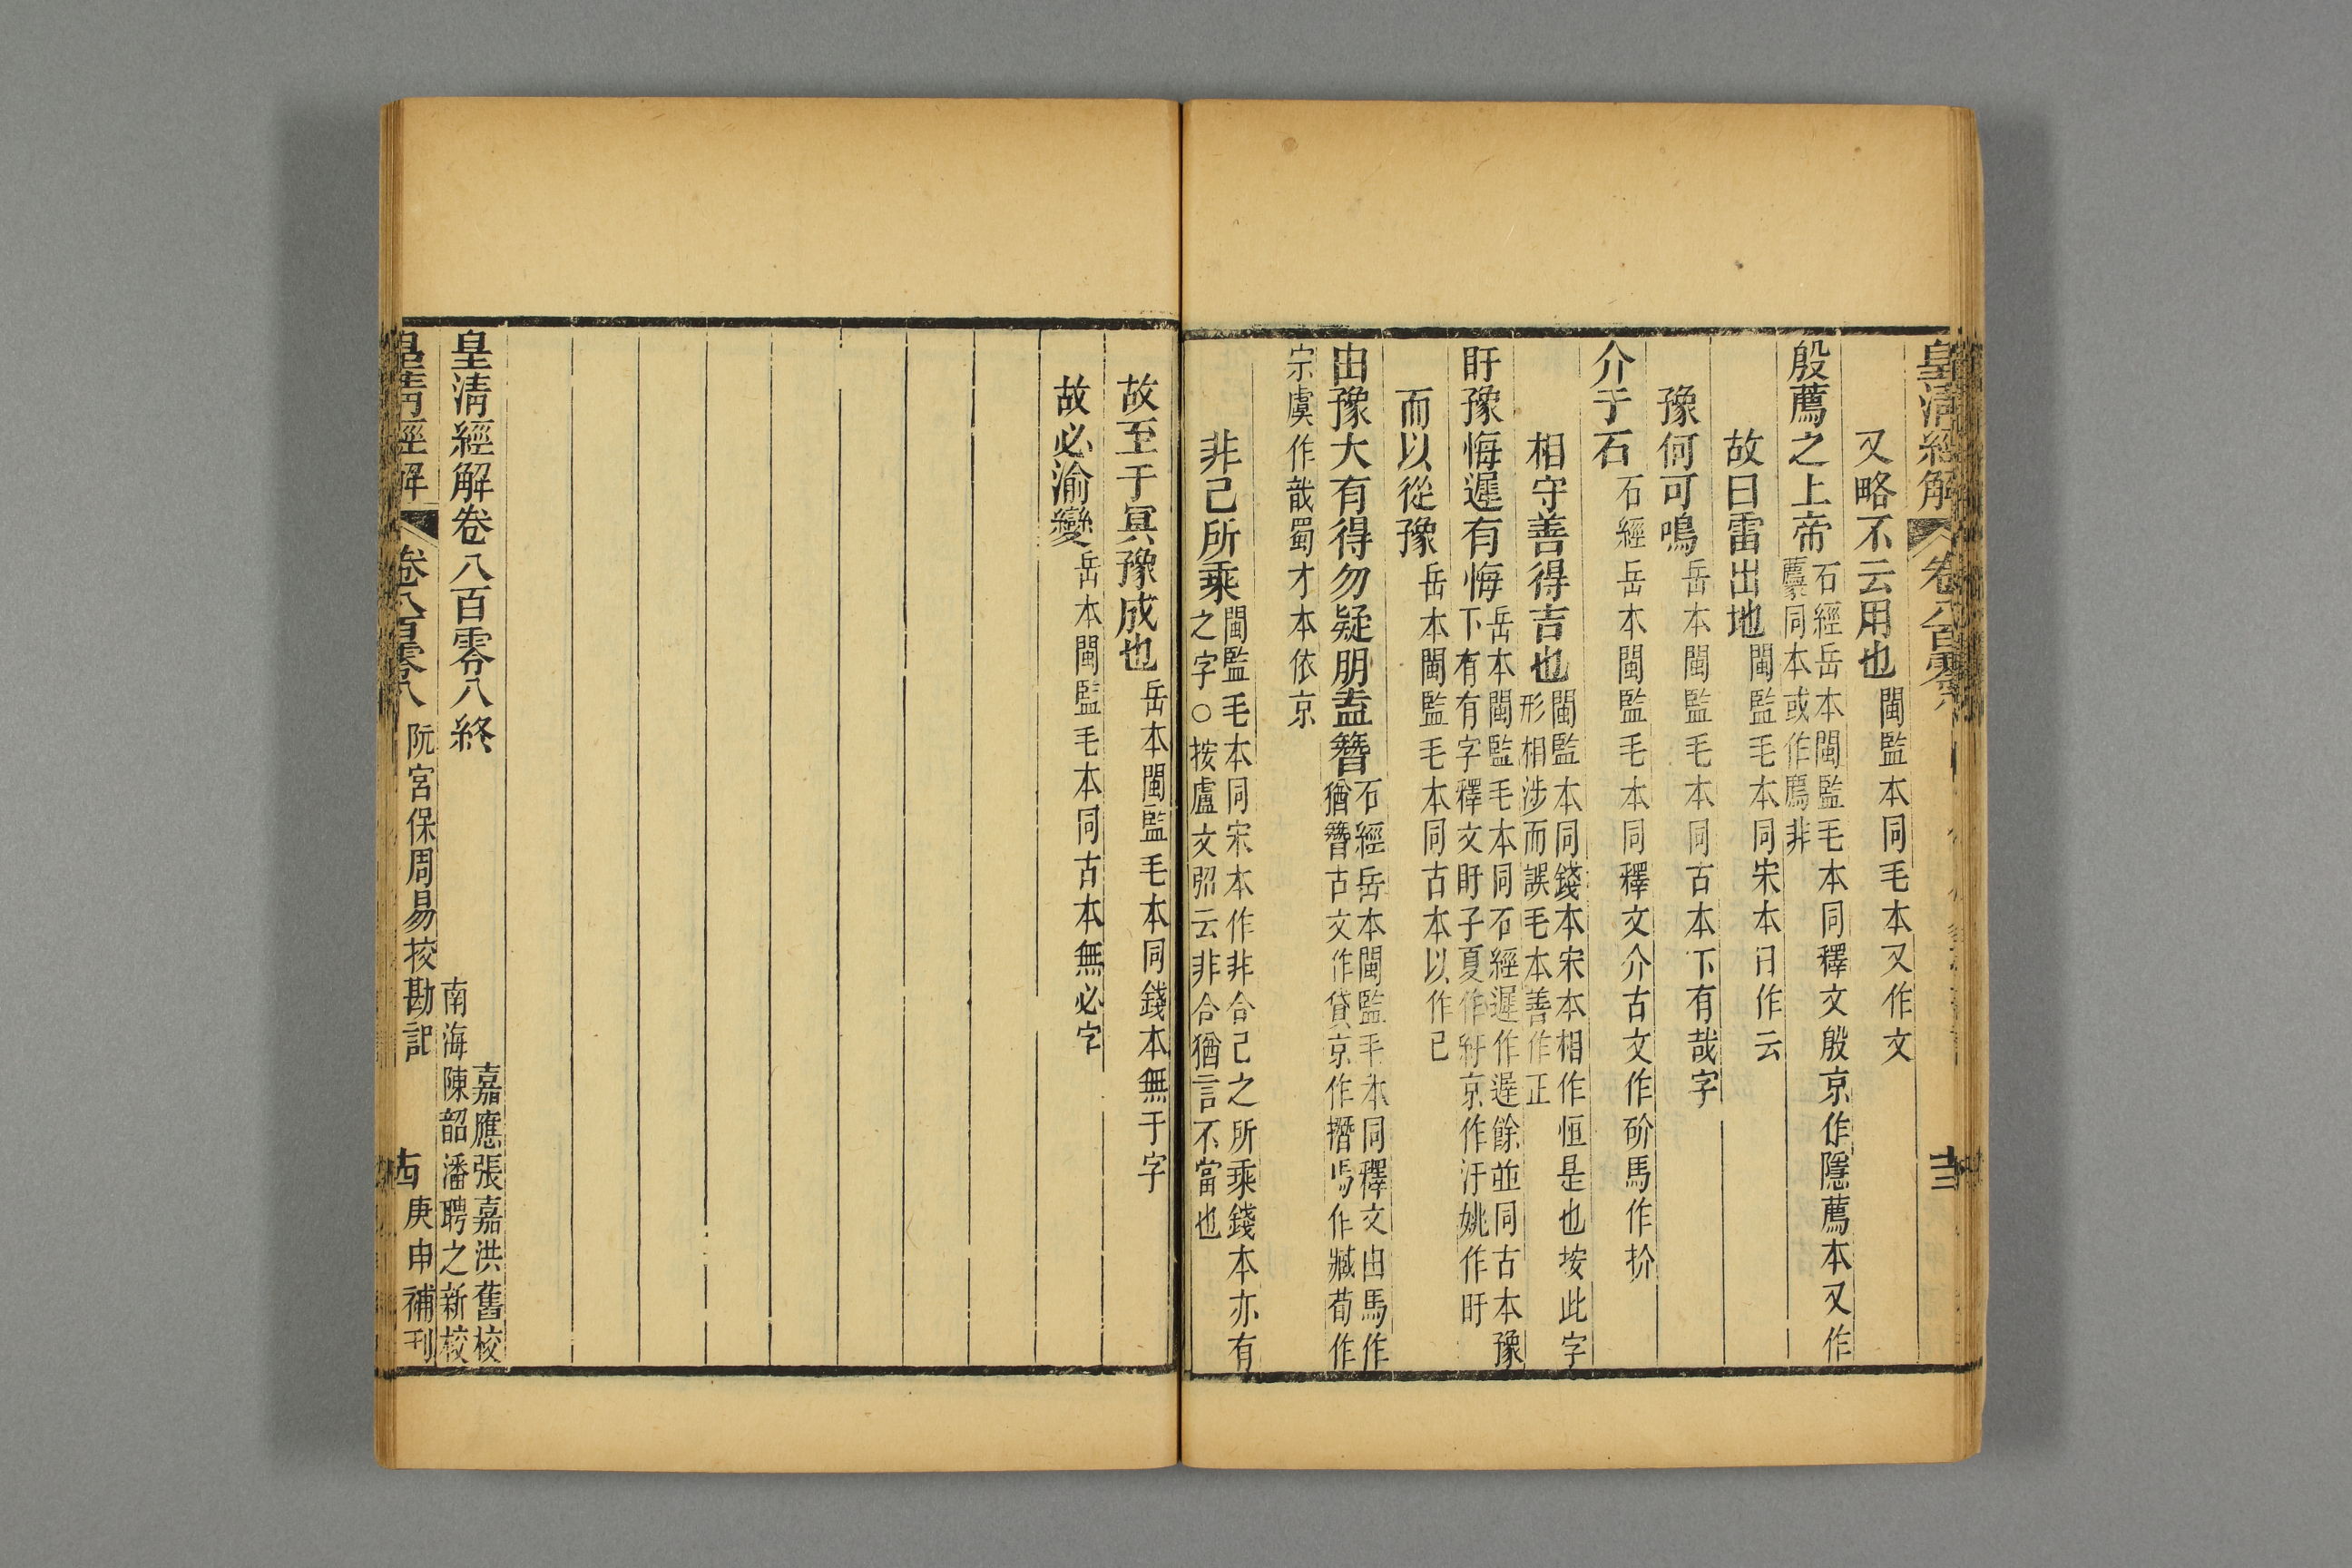 皇清經解 卷八百零八
又略不云用也閩監本同毛本又作文
殷薦之上帝石經岳本閩監毛本同釋文殷京作隱薦本又作
虆同本或作廌非
故曰雷出地閩監毛本同宋本曰作云
豫何可鳴岳本閩監毛本同古本下有哉字
介于石石經岳本閩監毛本同釋文介古文作砎馬作扴
相守善得吉也閩監本同錢本宋本相作恒是也按此字
形相涉而誤毛本善作正
盱豫悔遲有悔岳本閩監毛本同石經遲作遟餘並同古本豫
下有有字釋文盱子夏作紆京作汙姚作旴
而以從豫岳本閩監毛本同古本以作已
由豫大有得勿疑朋盍簪石經岳本閩監毛本同釋文由馬作
猶簪古文作貸京作撍馬作臧荀作
宗虞作戠蜀才本依京
非己所乘閩監毛本同宋本作非合己之所乘錢本亦有
之字○按盧文弨云非合猶言不當也
故至于冥豫成也岳本閩監毛本同錢本無于字
故必渝變岳本閩監毛本同古本無必字
皇清經解卷八百零八終
嘉應張嘉洪舊校
南海陳韶潘聘之新校
皇清經解 卷八百零八 阮宮保周易挍勘記 庚申補刊